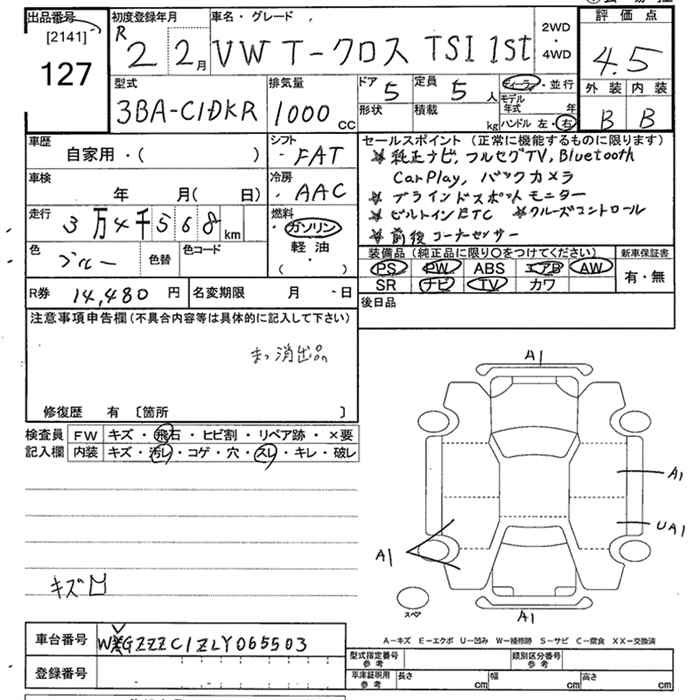 出品番号
[2141]
127
初度登録年月
R 2 2月
車名・グレード
VW T-クロス TSI 1st
2WD
・
4WD
評価点
4.5
外装 内装
B B
型式
3BA-C1DKR
排気量
1000 cc
ドア 5
定員 5 人
形状
積載 kg
ディーラー・並行
モデル年式 年
ハンドル 左・右
車歴
自家用・( )
シフト
FAT
車検
年 月(日)
冷房
AAC
走行
3万4千568km
燃料
・ガソリン
・軽油
( )
色
ブルー
色替
色コード
セールスポイント(正常に機能するものに限ります)
純正ナビ, フルセグTV, Bluetooth
CarPlay, バックカメラ
ブラインドスポットモニター
ビルトインETC クルーズコントロール
前後コーナーセンサー
装備品(純正品に限り○をつけてください)
PS PW ABS エアB AW
SR ナビ TV カワ
新車保証書
有・無
R券 14,480円
名変期限 月 日
後日品
注意事項申告欄(不具合内容等は具体的に記入して下さい)
消出品
修復歴 有 [箇所 ]
検査員
記入欄
FW キズ・飛石・ヒビ割・リペア跡・×要
内装 キズ・汚レ・コゲ・穴・スレ・キレ・破レ
キズ凹
A1
A1
UA1
A1
A1
スペア
A-キズ E-エクボ U-凹み W-補修跡 S-サビ C-腐食 XX-交換済
車台番号
GZZZC1ZLY065503
登録番号
型式指定番号
参考
類別区分番号
参考
車庫証明用
参考
長さ cm
幅 cm
高さ cm